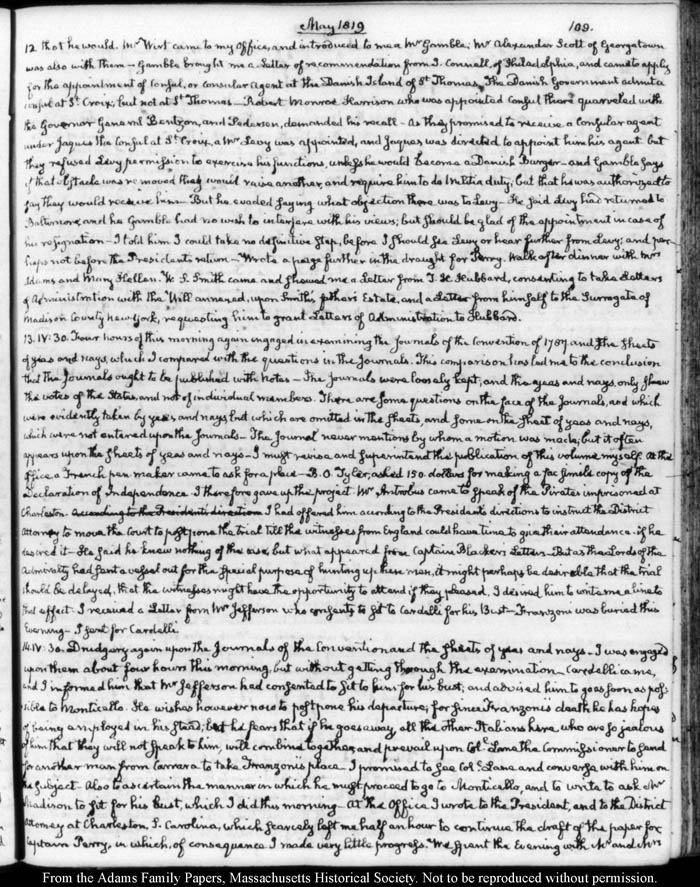 May 1819
109.
12. that he would. Mr. Wirt came to my Office, and introduced to me a Mr. Gamble; Mr. Alexander Scott of Georgetown
was also with them — Gamble brought me a Letter of recommendation from J. Connell, of Philadelphia, and came to apply
for the appointment of Consul, or Consular agent at the Danish Island of St. Thomas. The Danish Government admit a
Consul at St. Croix, but not at St. Thomas — Robert Monroe Harrison who was appointed Consul there quarreled with
the Governor General Bentzon, and Pedersen, demanded his recall — As they promised to receive a Consular agent
under Jaques the Consul at St. Croix, a Mr. Levy was appointed, and Jaques was directed to appoint him his agent but
they refused Levy permission to exercise his functions, unless he would become a Danish Burger — and Gamble says
if that obstacle was removed they would raise another, and require him to do Militia duty; but that he was authorized to
say they would receive him — But he evaded saying what objection there was to Levy — He said Levy had returned to
Baltimore, and he Gamble had no wish to interfere with his views; but should be glad of the appointment in case of
his resignation — I told him I could take no definitive step, before I should see Levy or hear further from Levy; and per-
haps not before the President's return — Wrote a page further in the draught for Perry. Walk after dinner with Mrs.
Adams and Mary Hellen. W. S. Smith came and shewed me a Letter from Hubbard, consenting to take Letters
of Administration with the Will annexed, upon Smith's father's Estate, and a Letter from himself to the Surrogate of
Madison County New York, requesting him to grant Letters of Administration to Hubbard.
13. IV:30. Four hours of this morning again engaged in examining the Journals of the Convention of 1787 and the sheets
of yeas and nays, which I compared with the questions in the Journals. This comparison has led me to the conclusion
that the Journals ought to be published with Notes — The Journals were loosely kept, and the yeas and nays, only shew
the votes of the States, and not of individual members. There are some questions on the face of the Journals, and which
were evidently taken by yeas, and nays, but which are omitted in the sheets, and some on the sheet of yeas and nays,
which were not entered upon the Journals — The Journal never mentions by whom a motion was made; but it often
appears upon the sheets of yeas and nays — I must revise and superintend this publication of this volume myself. At the
Office a French pen maker came to ask for a place — B. O. Tyler, asked 150 dollars for making a fac simile copy of the
Declaration of Independence. I therefore gave up the project. Mr. Antrobus came to speak of the Pirates imprisoned at
Charleston. According to the President's directions I had offered him according to the President's directions to instruct the District
Attorney to move the Court to postpone the trial till the witnesses from England could have time to give their attendance, if he
desired it — He said he knew nothing of the case, but what appeared from Captain Blacker's Letters — But as the Lords of the
Admiralty had sent a vessel out for the special purpose of hunting up these men, it might perhaps be desirable that the trial
should be delayed, that the witnesses might have the opportunity to attend if they pleased. I desired him to write me a line to
that effect. I received a Letter from Mr. Jefferson who consents to sit to Cardelli for his Bust — Franzoni was buried this
Evening — I sent for Cardelli.
14. IV:30. Drudgery again upon the Journals of the Convention and the sheets of yeas and nays. I was engaged
upon them about four hours this morning, but without getting through the examination — Cardelli came,
and I informed him that Mr. Jefferson had consented to sit to him for his bust, and advised him to go as soon as pos-
sible to Monticello. He wishes however now to postpone his departure; for since Franzoni's death he has hopes
of being employed in his stead; but he fears that if he goes away, all the other Italians here who are so jealous
of him that they will not speak to him, will combine together, and prevail upon Col. Lane the Commissioner to send
for another man from Carrara to take Franzoni's place. I promised to see Col. Lane and converse with him on
the subject — Also to ascertain the manner in which he must proceed to go to Monticello, and to write to ask Mr.
Madison to sit for his Bust, which I did this morning — At the Office I wrote to the President, and to the District
Attorney at Charleston, S. Carolina, which scarcely left me half an hour to continue the draft of the paper for
Captain Perry, in which, of consequence I made very little progress. We spent the Evening with Mr. and Mrs.
From the Adams Family Papers, Massachusetts Historical Society. Not to be reproduced without permission.